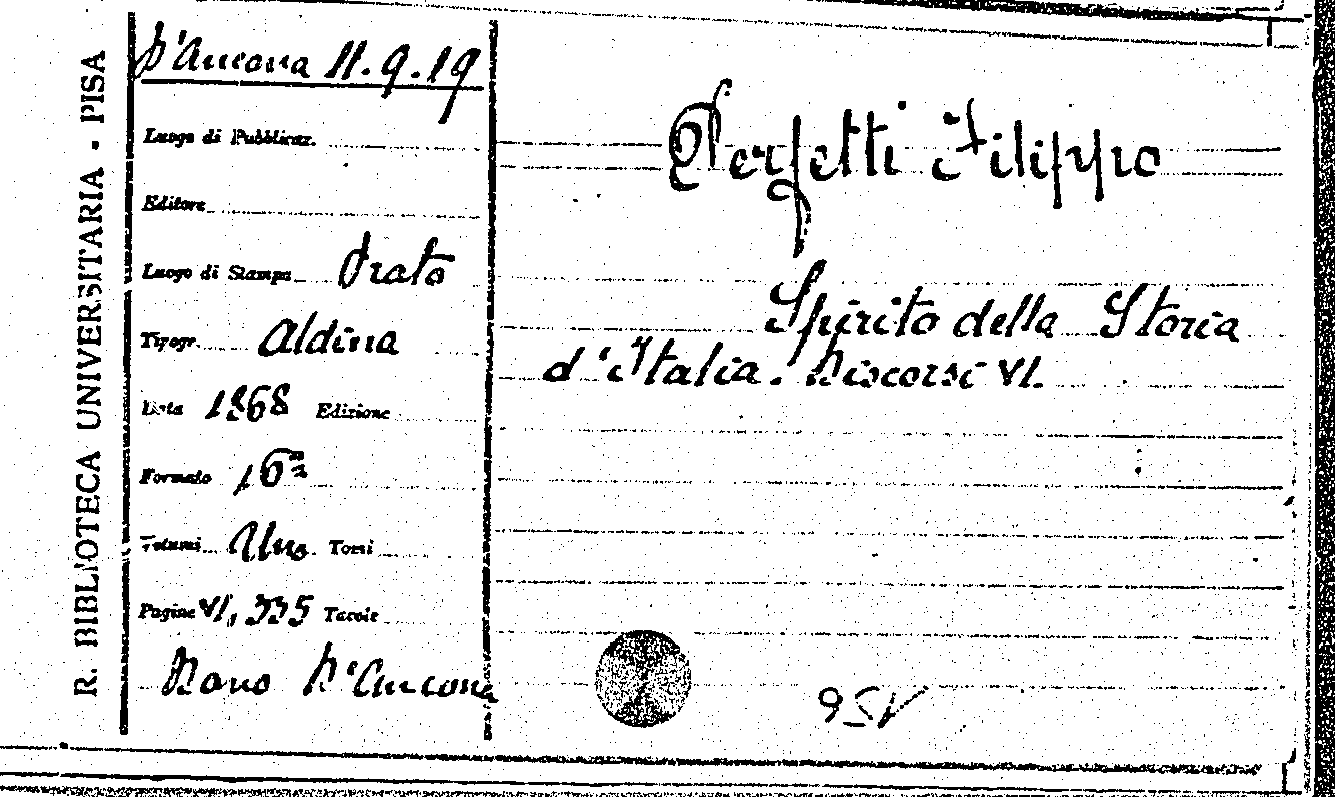 R. BIBLIOTECA UNIVERSITARIA - PISA
D'Ancona 11.9.19
Luogo di Pubblicaz.
Editore
Luogo di Stampa Prato
Tipogr. Aldina
Data 1868 Edizione
Formato 16º
Volumi Uno Tomi
Pagine VI, 335 Tavole
Dono D'Ancona
Perfetti Filippo
Spirito della Storia
d'Italia. Discorsi VI.